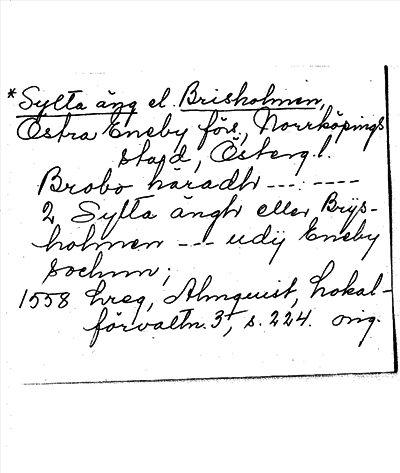 *Sylta äng el. Brisholmen,
Östra Eneby förs, Norrköpings
stad, Österg. l.
Brobo häradh --- ----
2 Sylta ängh eller Brijs-
holmen --- udij Eneby
sochnn;
1558 hreg, Almquist, Lokal-
förvaltn. 3, s. 224. orig.